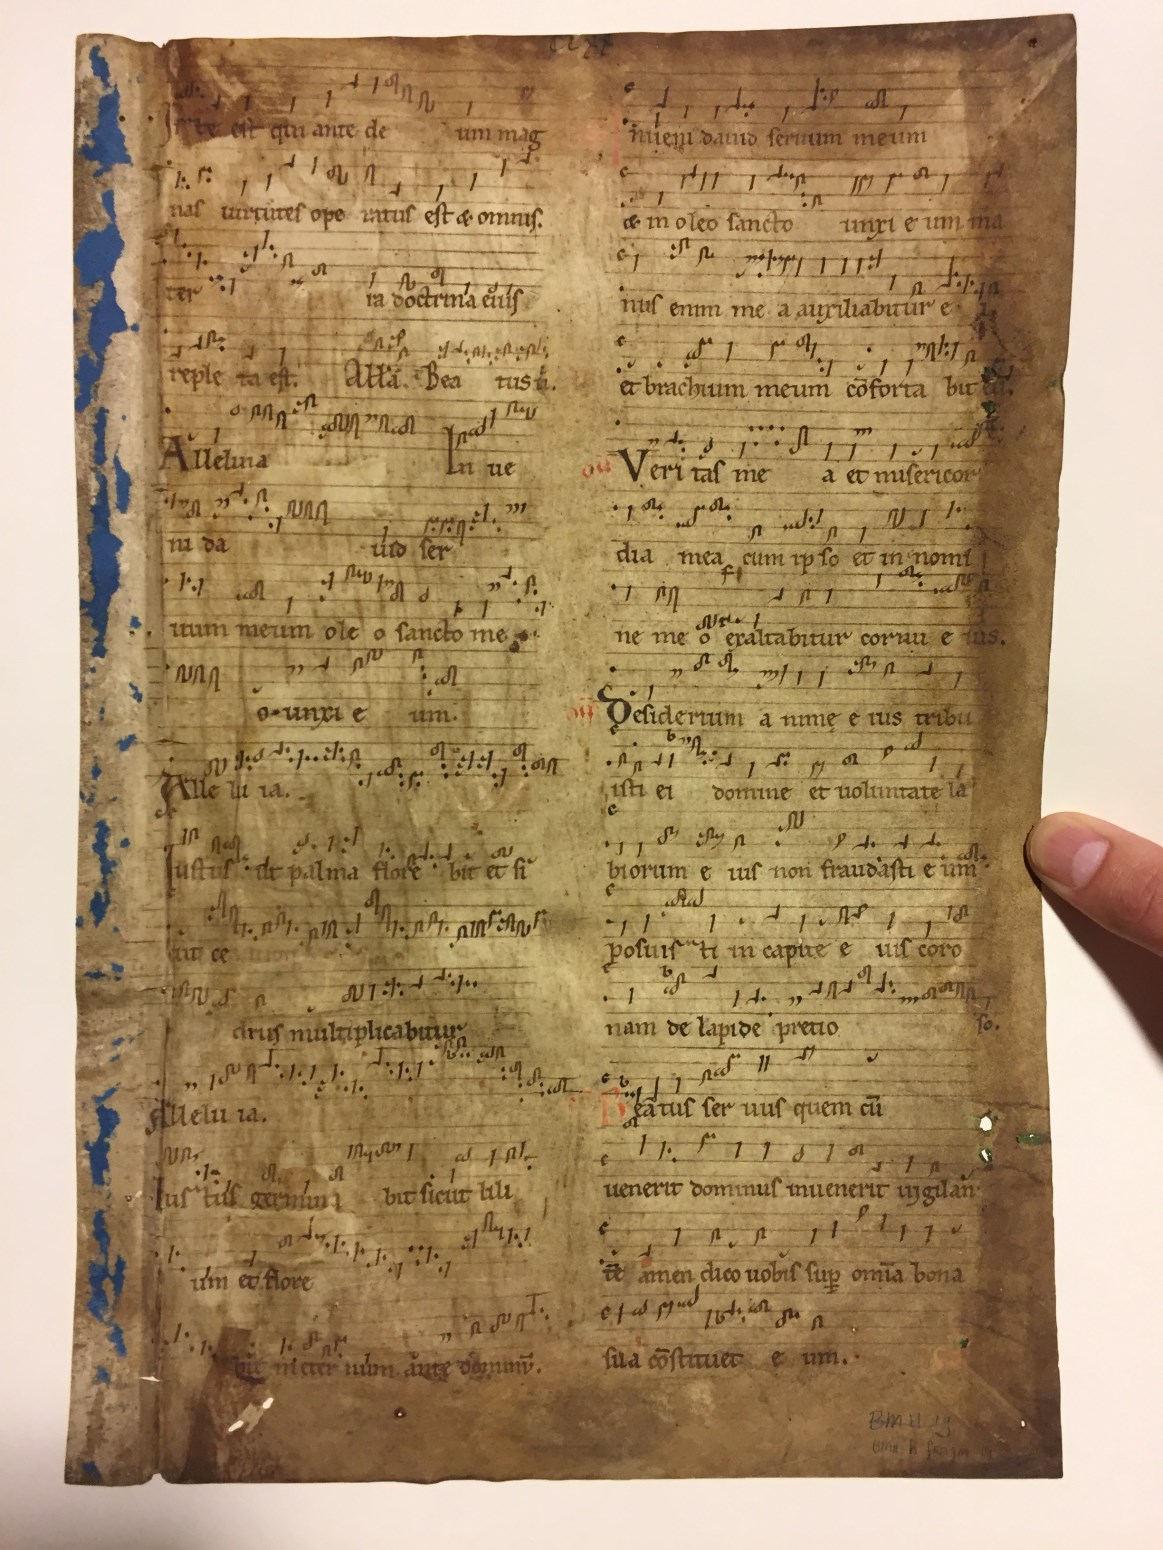 clxx
Iste est qui ante deum mag
nas virtutes operatus est & omnis
ter ra doctrina eius
repleta est. Alla. Beatus u.
Alleluia Inue
ni dauid ser
uum meum oleo sancto me
o unxi eum.
Alleluia.
Iustus ut palma florebit et si
cut ce
drus multiplicabitur
Alleluia.
Iustus germinabit sicut lili
um et flore
bit in eternum ante dominum.
Inueni dauid seruum meum
& in oleo sancto unxi eum ma
nus enim mea auxiliabitur e
et brachium meum cōfortabit eū.
ou Veritas mea et misericor
dia mea cum ipso et in nomi
ne meo exaltabitur cornu eius.
off Desiderium anime eius tribu
isti ei domine et uoluntate la
biorum eius non fraudasti eum
posuisti in capite eius coro
nam de lapide pretioso.
Beatus seruus quem cū
uenerit dominus inuenerit uigilan
tē amen dico uobis sup omnia bona
sua cōstituet eum.